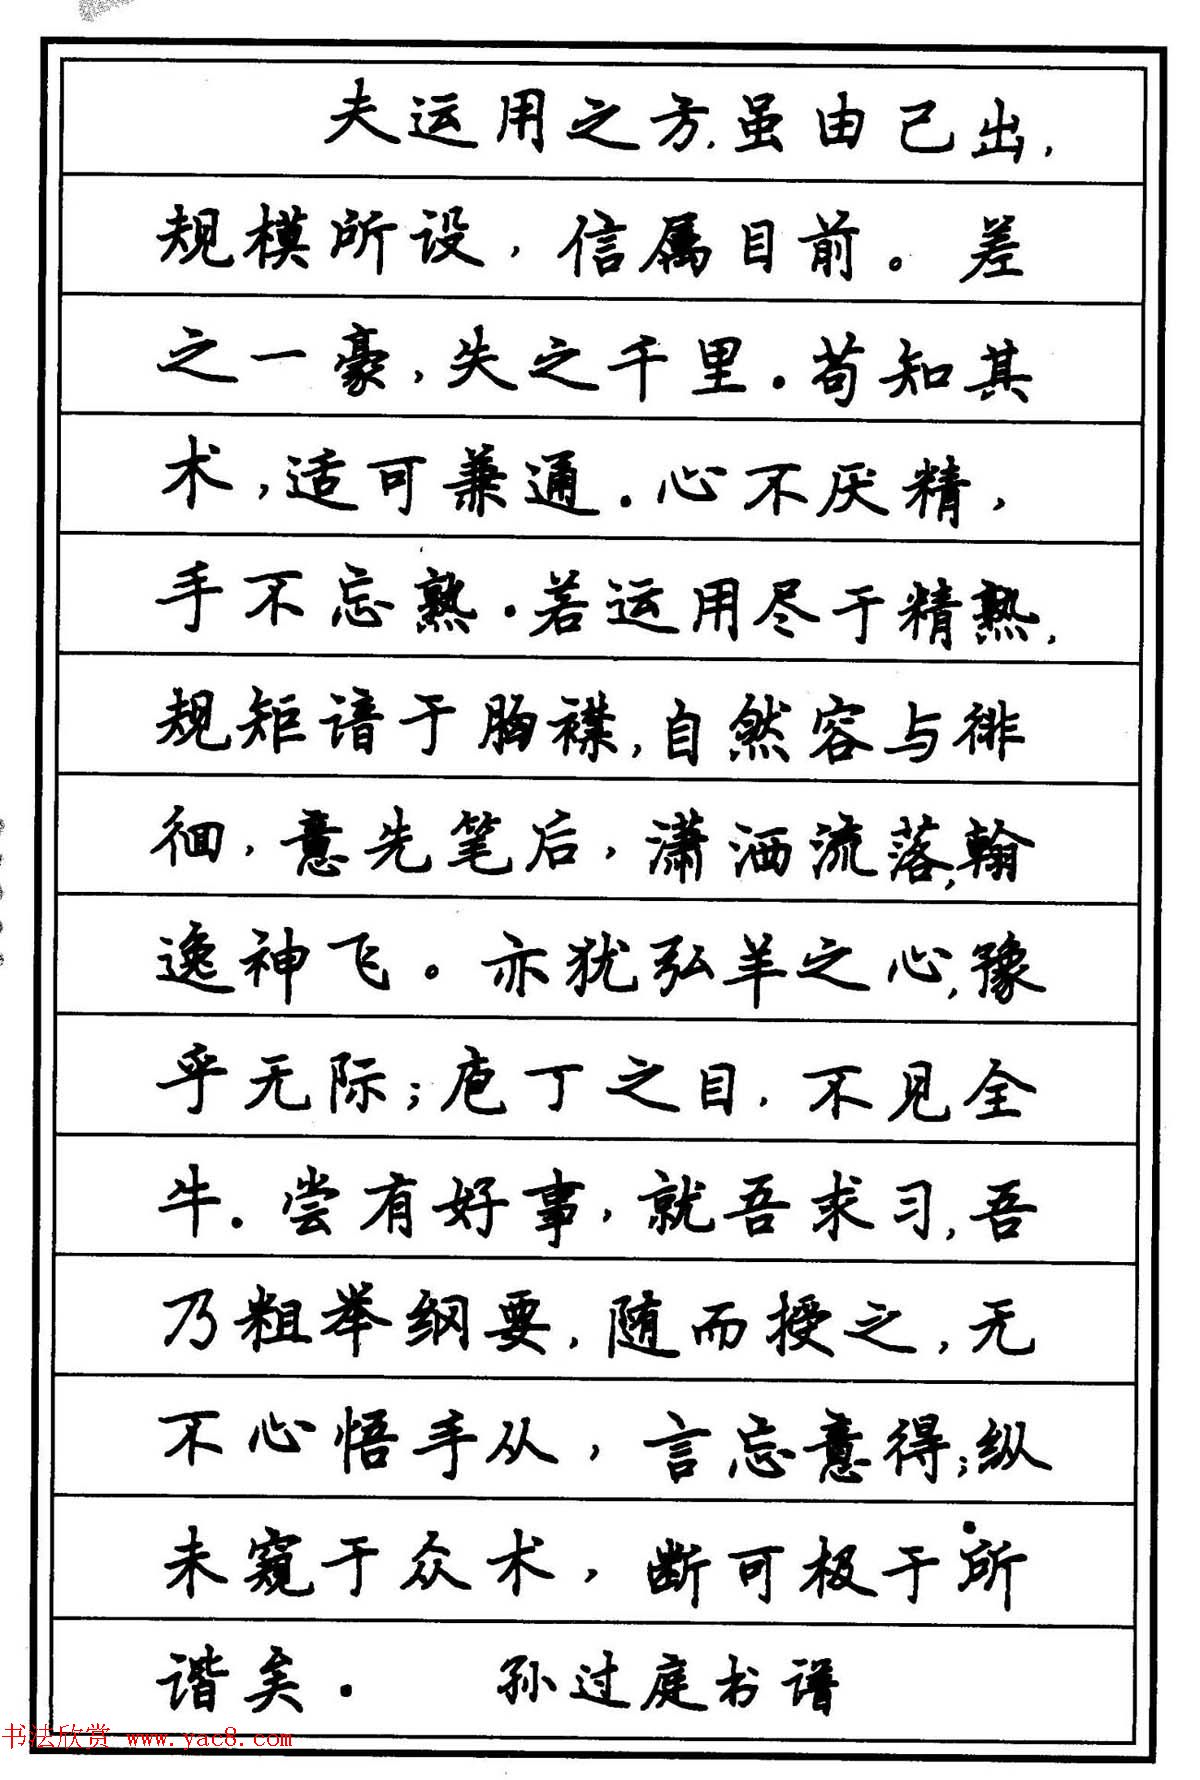 夫运用之方,虽由己出,
规模所设,信属目前。差
之一豪,失之千里。苟知其
术,适可兼通。心不厌精,
手不忘熟。若运用尽于精熟,
规矩谙于胸襟,自然容与徘
徊,意先笔后,潇洒流落,翰
逸神飞。亦犹弘羊之心,豫
乎无际;庖丁之目,不见全
牛。尝有好事,就吾求习,吾
乃粗举纲要,随而授之,无
不心悟手从,言忘意得;纵
未窥于众术,断可极于所
谐矣。 孙过庭书谱
书法欣赏 www.yac8.com